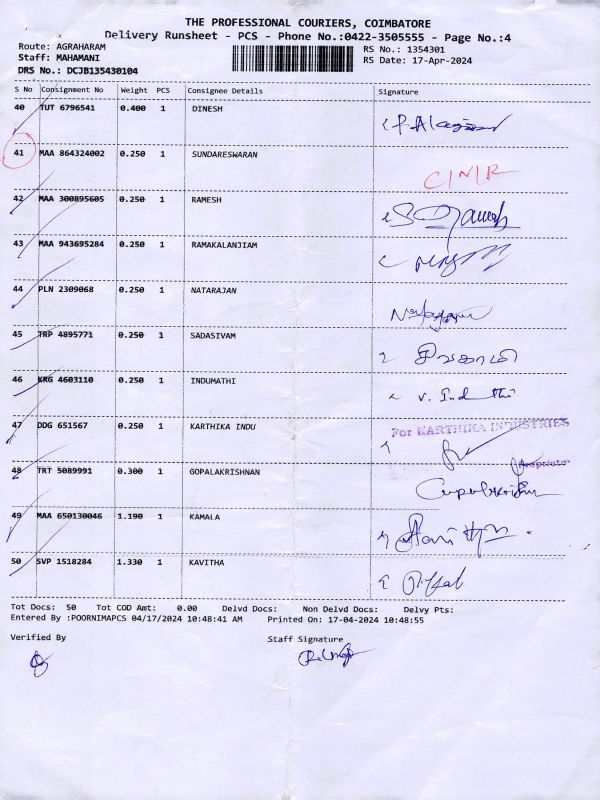 THE PROFESSIONAL COURIERS, COIMBATORE
Delivery Runsheet - PCS - Phone No.:0422-3505555 - Page No.:4
Route: AGRAHARAM
RS No.: 1354301
Staff: MAHAMANI
RS Date: 17-Apr-2024
DRS No.: DCJB135430104
S No Consignment No Weight PCS Consignee Details Signature
40 TUT 6796541 0.400 1 DINESH
41 MAA 864324002 0.250 1 SUNDARESWARAN C/N/R
42 MAA 300895605 0.250 1 RAMESH
43 MAA 943695284 0.250 1 RAMAKALANJIAM
44 PLN 2309068 0.250 1 NATARAJAN
45 TRP 4895771 0.250 1 SADASIVAM
46 KRG 4603110 0.250 1 INDUMATHI V. Indhuthi
47 DDG 651567 0.250 1 KARTHIKA INDU For KARTHIKA INDUSTRIES
48 TRT 5089991 0.300 1 GOPALAKRISHNAN
49 MAA 650130046 1.190 1 KAMALA
50 SVP 1518284 1.330 1 KAVITHA
Tot Docs: 50 Tot COD Amt: 0.00 Delvd Docs: Non Delvd Docs: Delvy Pts:
Entered By :POORNIMAPCS 04/17/2024 10:48:41 AM Printed On: 17-04-2024 10:48:55
Verified By Staff Signature